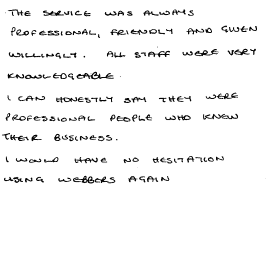 THE SERVICE WAS ALWAYS
PROFESSIONAL, FRIENDLY AND GIVEN
WILLINGLY. ALL STAFF WERE VERY
KNOWLEDGEABLE.
I CAN HONESTLY SAY THEY WERE
PROFESSIONAL PEOPLE WHO KNEW
THEIR BUSINESS.
I WOULD HAVE NO HESITATION
USING WEBBERS AGAIN